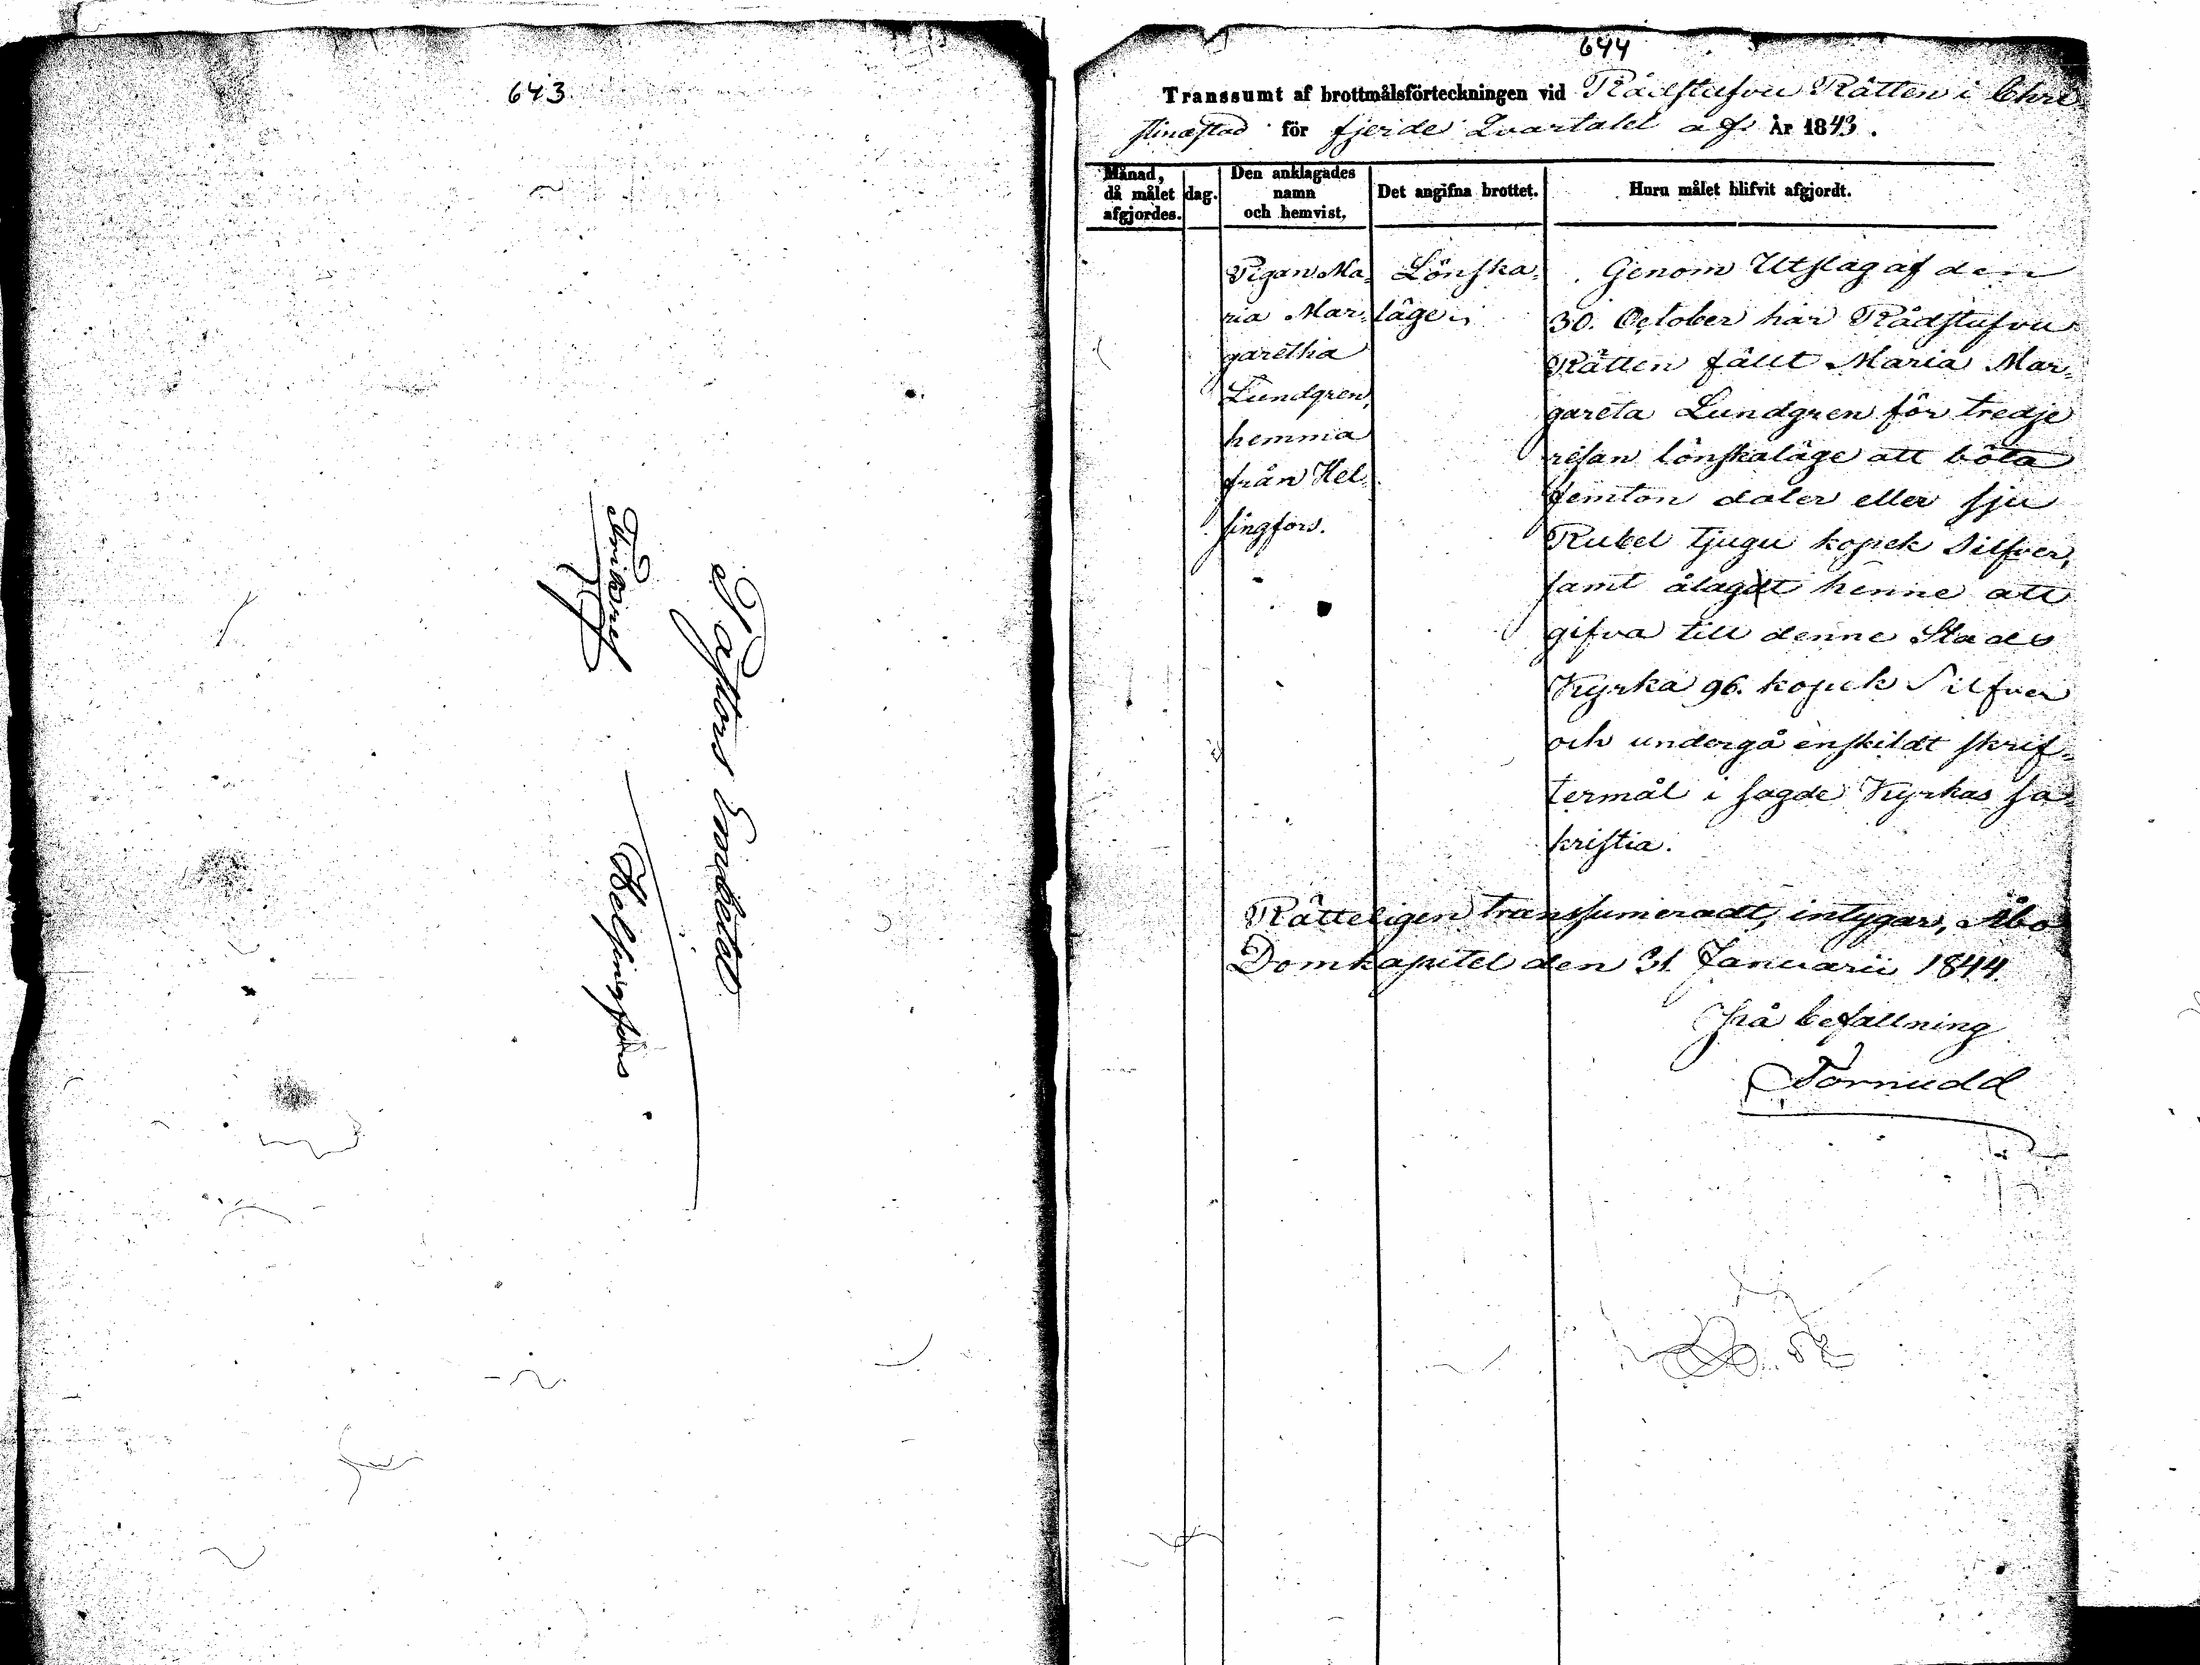 643
Pastors Embetet
Helsingfors
644
Transsumt af brottmålsförteckningen vid Rådstufvu Rätten i Chri-
stinæstad för fjerde Qvartalet af År 1843.
Månad, då målet afgjordes.
dag.
Den anklagades namn och hemvist,
Det angifna brottet.
Huru målet blifvit afgjordt.
Pigan Ma-
ria Mar-
garetha
Lundgren,
hemma
från Hel-
singfors.
Lönska-
läge.
Genom Utslag af den
30. October har Rådstufvu
Rätten fällt Maria Mar-
gareta Lundgren för tredje
resan lönskaläge att böta
femton daler eller sju
Rubel tjugu kopek Silfver,
samt ålagdt henne att
gifva till denne Stads
Kyrka 96. kopek Silfver
och undergå enskildt skrif-
termål i sagde Kyrkas sa-
kristia.
Rätteligen transsumeradt, intygar, Åbo
Domkapitel den 31. Januarii 1844.
På befallning
Törnudd